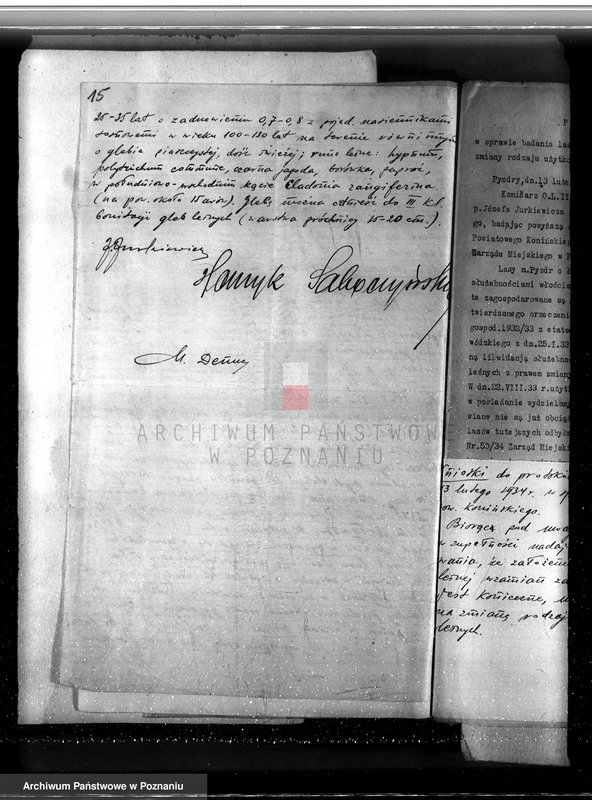 15
25-35 lat o zadrzewieniu 0,7-0,8 z pojed. nasiennikami
sosnowemi w wieku 100-130 lat na terenie równinnym
o glebie piaszczystej, dość świeżej; runo leśne: hypnum,
polytrichum commune, czarna jagoda, borówka, paproć,
w południowo-wschodnim kącie Cladonia rangiferina
(na pow. około 15 arów). Glebę można odnieść do III kl.
bonitacji gleb leśnych (warstwa próchnicy 15-20 ctm.).
J. Jurkiewicz
Henryk
M.
P
w sprawie badania las
zmiany rodzaju użytko
Pyzdry, dn. 13 lute
Komisarz O.L.II
p. Józefa Jurkiewicza
go, badając powyższą
Powiatowego Konińskieg
Zarządu Miejskiego w P
Lasy m. Pyzdr o
służebnościami włościa
te zagospodarowane są
twierdzonego orzeczeni
gospod. 1932/33 z etate
wódzkiego z dn. 25.I.33
ną likwidację służebno
leśnych z prawem zmiany
W dn. 22.VIII.33 r. użyt
w posiadanie wydzielan
wiane nie są już obcią
lasów tutejszych odbył
Nr. 53/34 Zarząd Miejsk
Wnioski do protokó
13 lutego 1934 r. w
pow. konińskiego.
Biorąc pod uwa
w zupełności nadaj
wania, że założeni
leśnej wzamian za
jest konieczne,
na zmianę rodzaj
leśnych.
ARCHIWUM PAŃSTWOWE
W POZNANIU
Archiwum Państwowe w Poznaniu